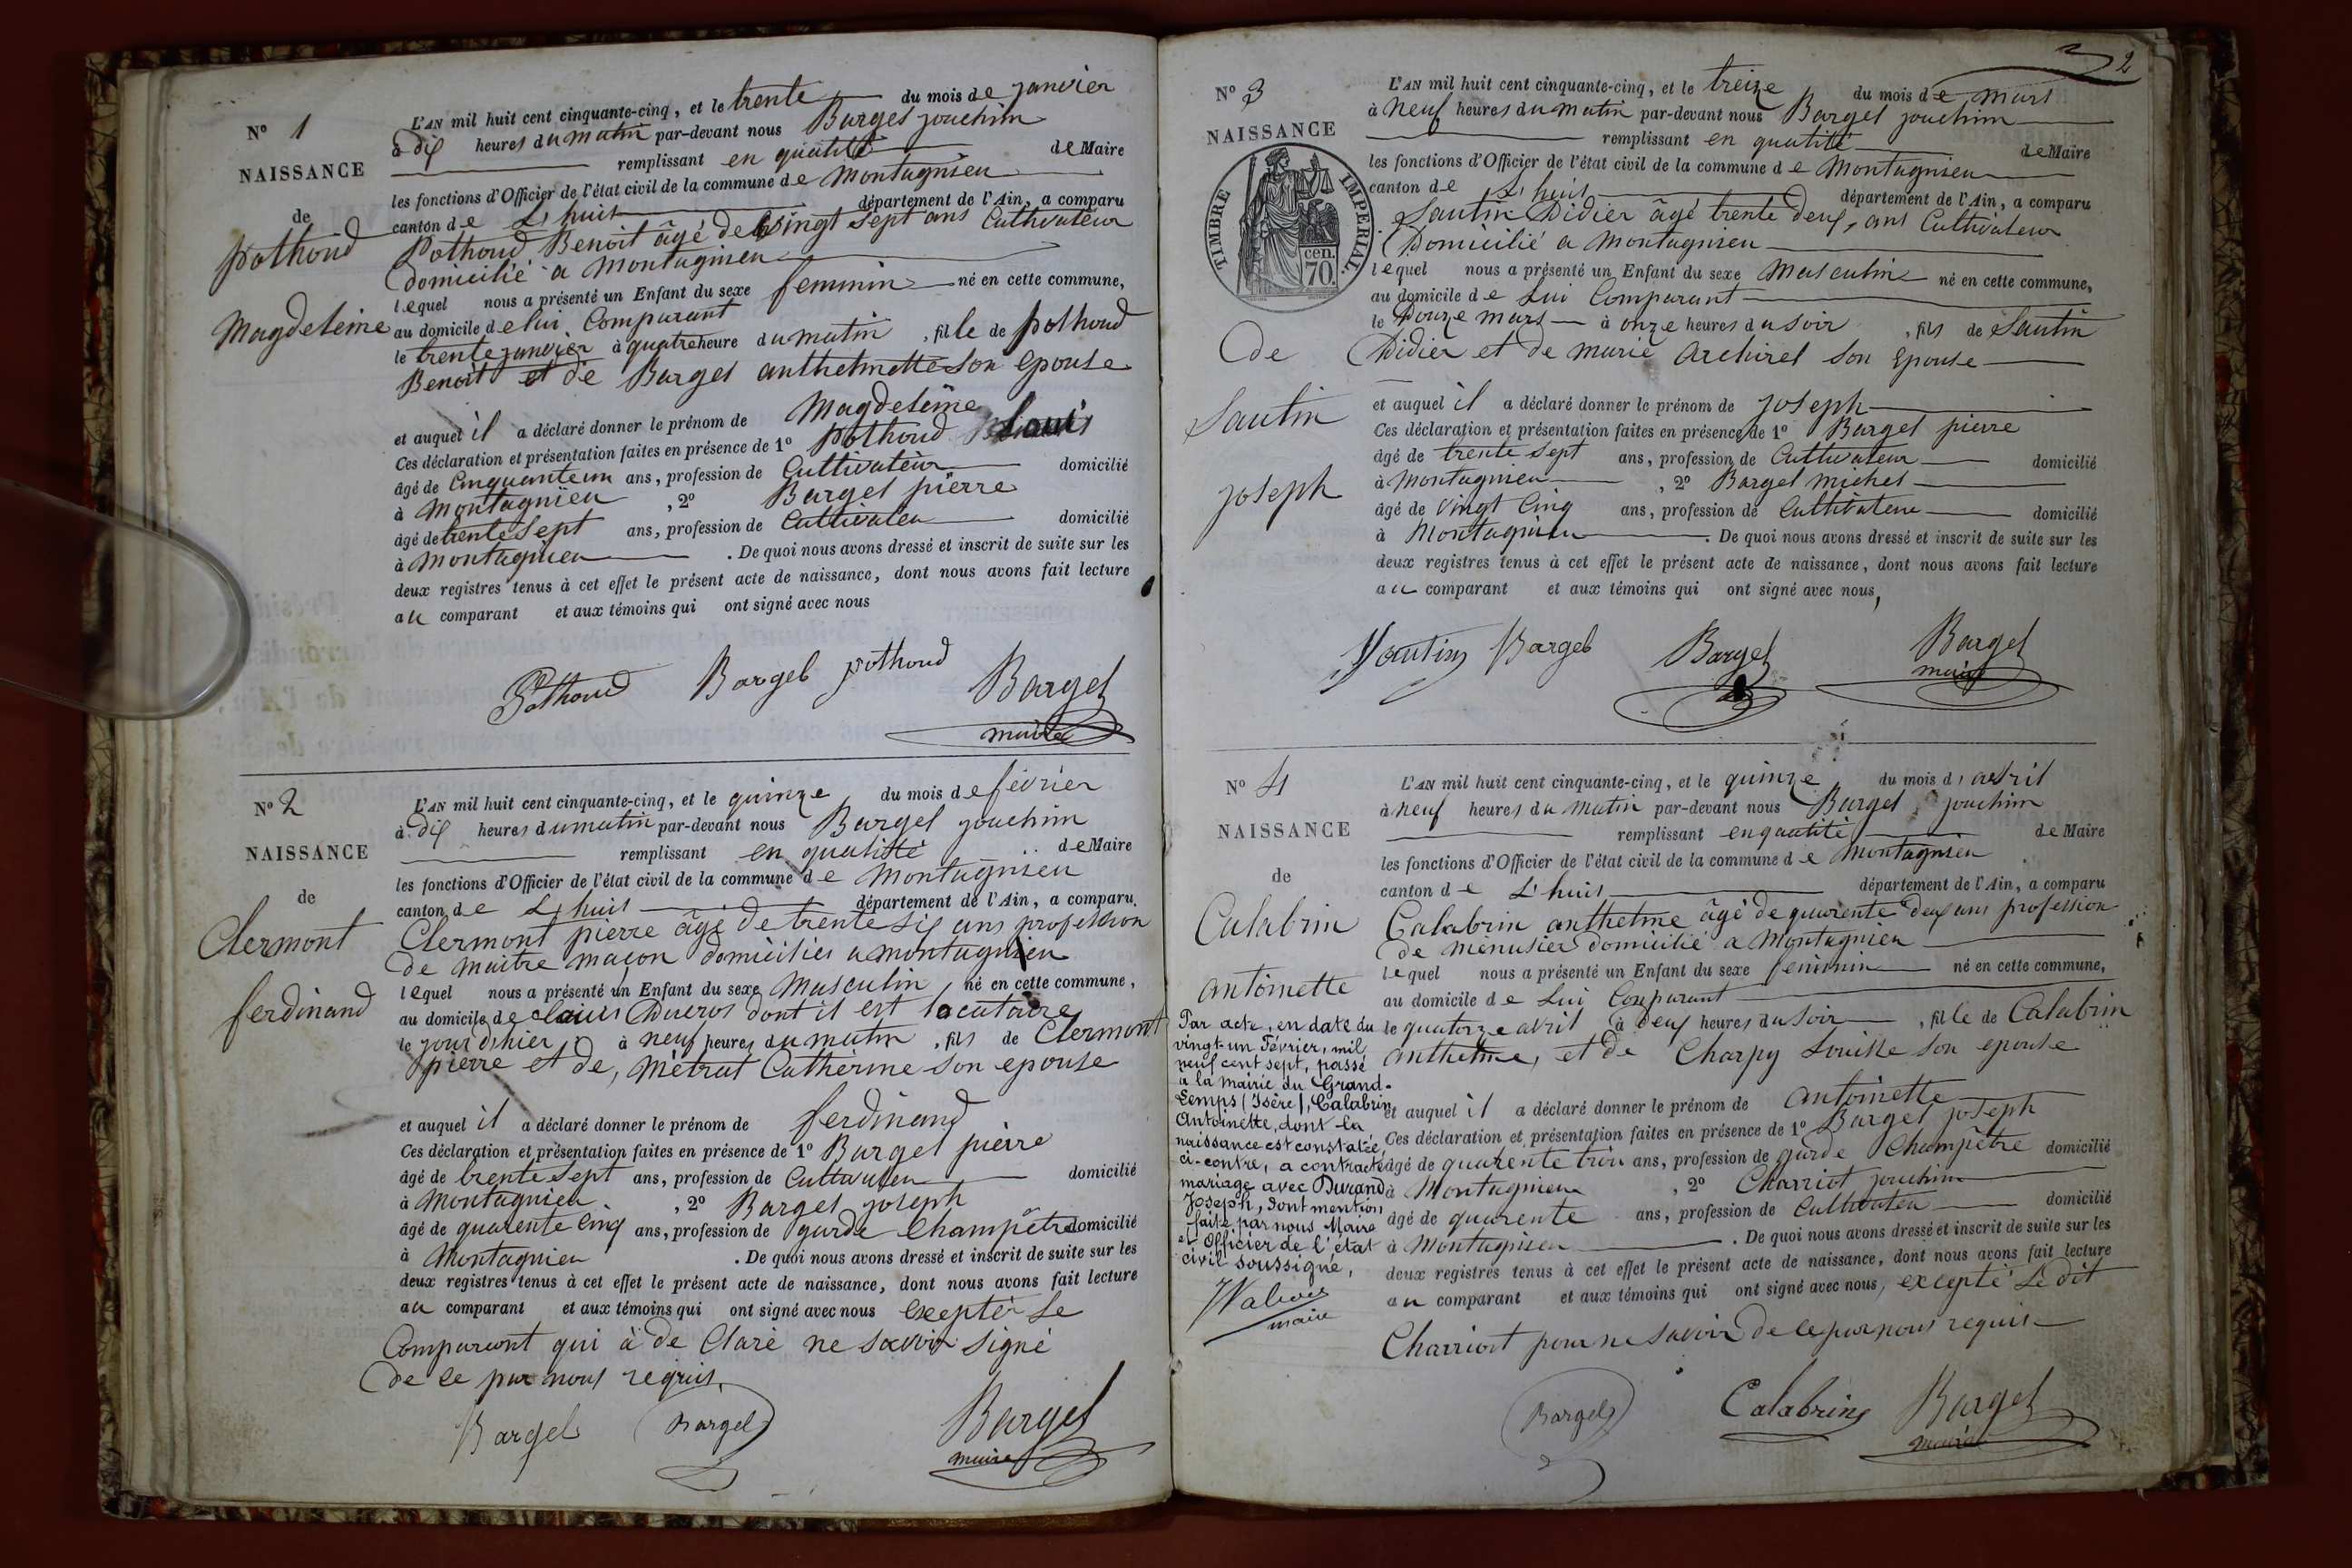 N° 1
NAISSANCE
de
pothoud
Magdeleine
L'AN mil huit cent cinquante-cinq, et le trente du mois de janvier
à dix heures du matin par-devant nous Bargel jouchim
remplissant en qualité de Maire
les fonctions d'Officier de l'état civil de la commune de Montagnieu
canton de L'huis département de l'Ain, a comparu
Pothoud Benoit âgé de vingt sept ans Cultivateur
Domicilié a Montagnieu
lequel nous a présenté un Enfant du sexe feminin né en cette commune,
au domicile de lui Comparant
le trente janvier à quatre heure du matin, fille de pothoud
Benoit et de Bargel anthelmette son epouse
et auquel il a déclaré donner le prénom de Magdeleine
Ces déclaration et présentation faites en présence de 1° pothoud Louis
âgé de Cinquante un ans, profession de Cultivateur domicilié
à Montagnieu, 2° Bargel pierre
âgé de trente sept ans, profession de Cultivateu domicilié
à Montagnieu. De quoi nous avons dressé et inscrit de suite sur les
deux registres tenus à cet effet le présent acte de naissance, dont nous avons fait lecture
au comparant et aux témoins qui ont signé avec nous
Pothoud Bargel pothoud Bargel
maire
N° 2
NAISSANCE
de
Clermont
ferdinand
L'AN mil huit cent cinquante-cinq, et le quinze du mois de février
à dix heures du matin par-devant nous Bargel jouchim
remplissant en qualitté de Maire
les fonctions d'Officier de l'état civil de la commune de Montagnieu
canton de L'huis département de l'Ain, a comparu
Clermont pierre âgé de trente six ans profession
de maitre maçon domiciliés a montagnieu
lequel nous a présenté un Enfant du sexe Masculin né en cette commune,
au domicile de Louis Ducros dont il est locataire
le jour d'hier à neuf heures du matin, fils de Clermont
pierre et de, Métrat Cathérine son epouse
et auquel il a déclaré donner le prénom de ferdinand
Ces déclaration et présentation faites en présence de 1° Bargel pierre
âgé de trente sept ans, profession de Cultivateu domicilié
à Montagnieu, 2° Bargel joseph
âgé de quarente Cinq ans, profession de garde Champêtre domicilié
à Montagnieu. De quoi nous avons dressé et inscrit de suite sur les
deux registres tenus à cet effet le présent acte de naissance, dont nous avons fait lecture
au comparant et aux témoins qui ont signé avec nous exceptér le
Comparant qui à de Claré ne savoir signé
De ce par nous requis.
Bargel Bargel Bargel
maire
2
N° 3
NAISSANCE
TIMBRE IMPERIAL
cen.
70.
de
Sautin
joseph
L'AN mil huit cent cinquante-cinq, et le treize du mois de mars
à neuf heures du matin par-devant nous Bargel jouchim
remplissant en qualité de Maire
les fonctions d'Officier de l'état civil de la commune de Montagnieu
canton de L'huis département de l'Ain, a comparu
Sautin Didier âgé trente deux, ans Cultivateur
Domicilié a Montagnieu
lequel nous a présenté un Enfant du sexe Masculin né en cette commune,
au domicile de Lui Comparant
le Douze mars à onze heures du soir, fils de Sautin
Didier et de marie Archirel son Epouse
et auquel il a déclaré donner le prénom de joseph
Ces déclaration et présentation faites en présence de 1° Bargel pierre
âgé de trente sept ans, profession de Cultivateur domicilié
à Montagnieu, 2° Bargel michel
âgé de vingt Cinq ans, profession de Cultivateur domicilié
à Montagnieu. De quoi nous avons dressé et inscrit de suite sur les
deux registres tenus à cet effet le présent acte de naissance, dont nous avons fait lecture
au comparant et aux témoins qui ont signé avec nous,
Sautin Bargel Bargel Bargel
maire
N° 4
NAISSANCE
de
Calabrin
antoinette
L'AN mil huit cent cinquante-cinq, et le quinze du mois d'avril
à neuf heures du matin par-devant nous Bargel jouchim
remplissant en qualité de Maire
les fonctions d'Officier de l'état civil de la commune de Montagnieu
canton de L'huis département de l'Ain, a comparu
Calabrin anthelme âgé de quarente deux ans profession
de menusier domicilié a Montagnieu
lequel nous a présenté un Enfant du sexe feminin né en cette commune,
au domicile de Lui Comparant
le quatorze avril à deux heures du soir, fille de Calabrin
anthelme, et de Charpy Louisse son epouse
et auquel il a déclaré donner le prénom de antoinette
Ces déclaration et présentation faites en présence de 1° Bargel joseph
âgé de quarente trois ans, profession de garde Champêtre domicilié
à Montagnieu, 2° Charriot jouchim
âgé de quarente ans, profession de Cultivateu domicilié
à Montagnieu. De quoi nous avons dressé et inscrit de suite sur les
deux registres tenus à cet effet le présent acte de naissance, dont nous avons fait lecture
au comparant et aux témoins qui ont signé avec nous, excepté Le dit
Charriot pour ne savoir De ce par nous requis
Bargel Calabrin Bargel
maire
Par acte, en date du
vingt-un Février, mil
neuf cent sept, passé
à la mairie du Grand-
Lemps (Isère), Calabrin
Antoinette, dont la
naissance est constatée
ci-contre, a contracté
mariage avec Durand
Joseph, dont mention
faite par nous Maire
et Officier de l'état
civil soussigné,
maire